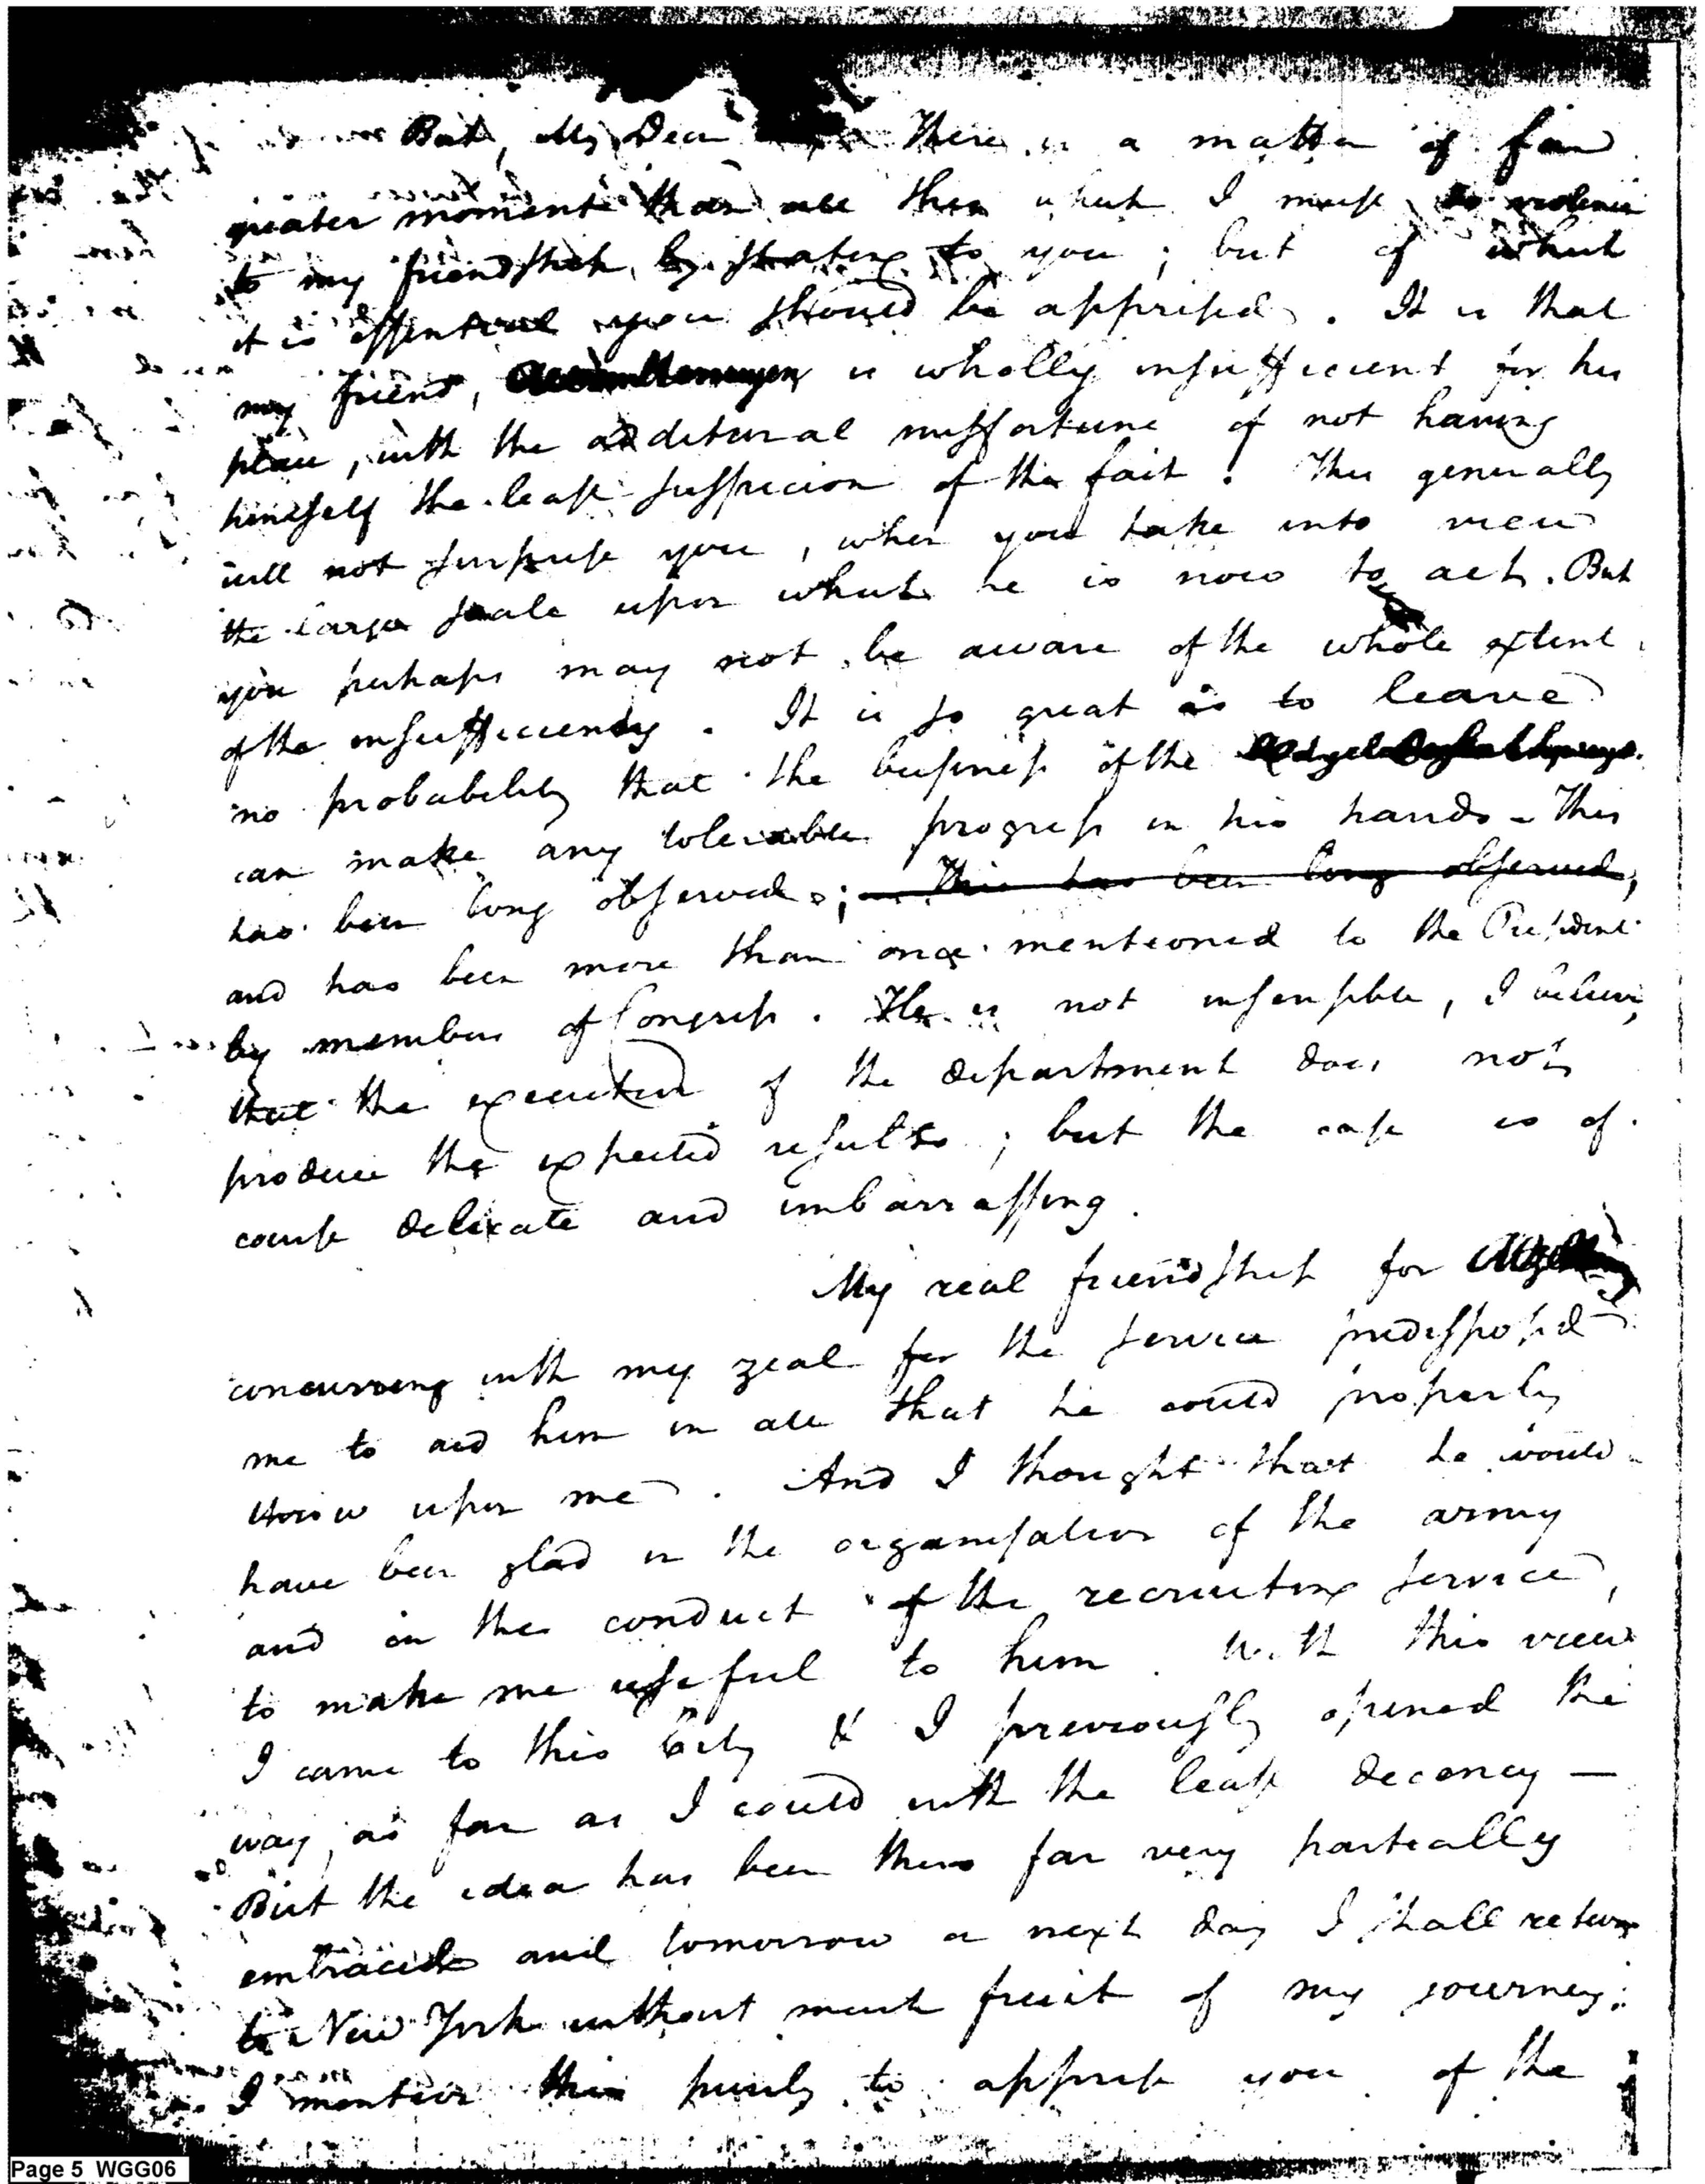 But, My Dear There is a matter of far
greater moment than all this which I must do violence
to my friendship by stating to you; but of which
it is essential you should be apprised. It is that
my friend, is wholly insufficient for his
place, with the additional misfortune of not having
himself the least suspicion of the fact! This generally
will not surprise you, when you take into view
the large scale upon which he is now to act. But
you perhaps may not be aware of the whole extent
of the insufficiency. It is so great as to leave
no probability that the business of the
can make any tolerable progress in his hands - This
has been long observed; This has been long observed,
and has been more than once mentioned to the President
by members of Congress. He is not insensible, I believe,
that the execution of the department does not
produce the expected results; but the case is of
course delicate and imbarrassing.
My real friendship for
concurring with my zeal for the service predisposed
me to aid him in all that he could properly
throw upon me. And I thought that he would
have been glad in the organisation of the army
and in the conduct of the recruiting service,
to make me useful to him. With this view
I came to this City & I previously opened the
way, as far as I could with the least decency —
But the idea has been thus far very partially
embraced and tomorrow or next day I shall return
to New York without much fruit of my journey.
I mention this purely to apprise you of the
Page 5 WGG06